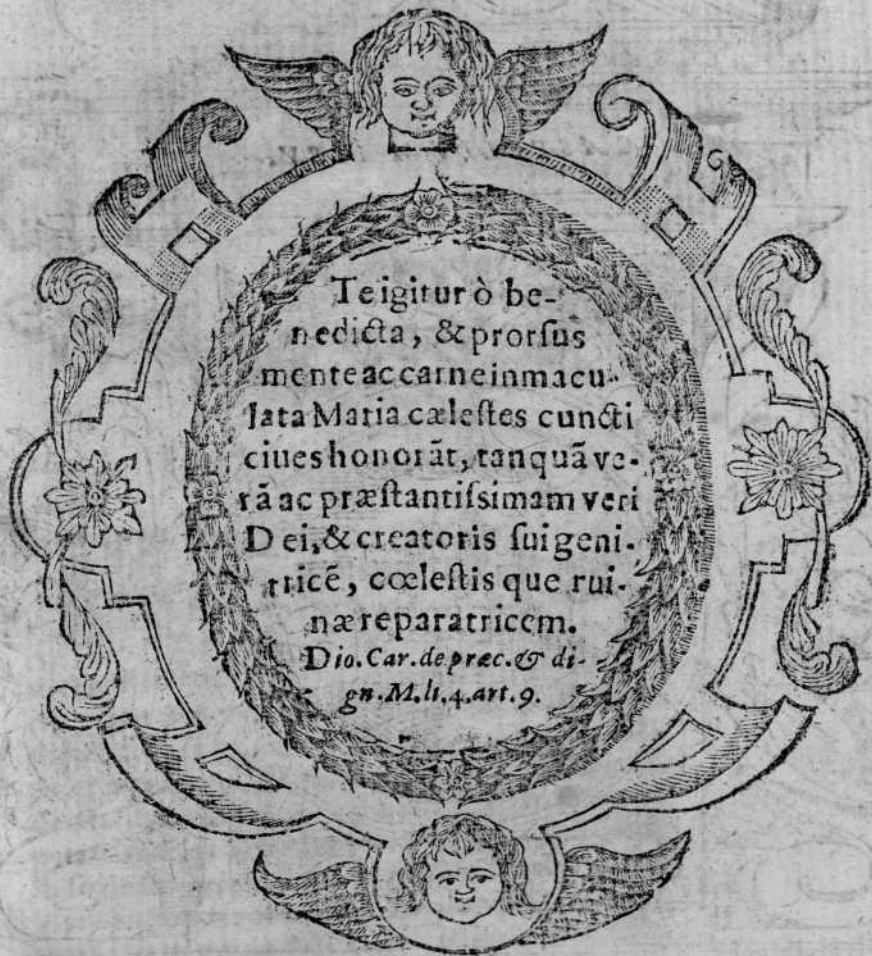 Te igitur ò be-
nedicta, & prorſus
mente ac carne inmacu-
lata Maria cæleſtes cuncti
ciues honorāt, tanquā ve-
rā ac præſtantiſsimam veri
Dei, & creatoris ſui geni-
tricē, cœleſtis que rui-
næ reparatricem.
Dio. Car. de præc. & di-
gn. M. li. 4. art. 9.